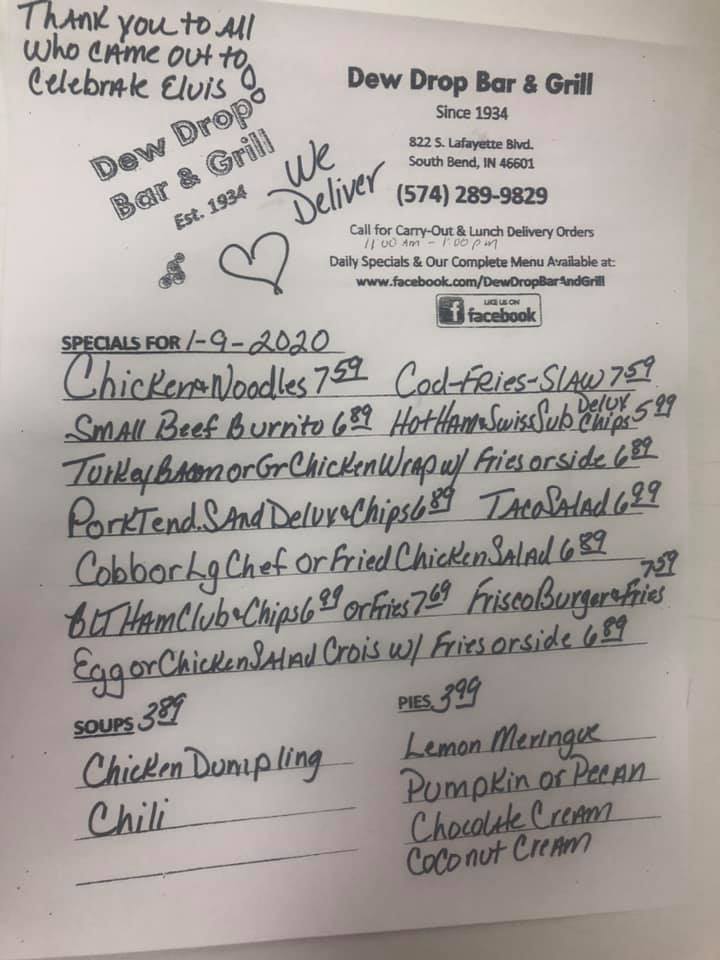 Thank you to All
who came out to
Celebrate Elvis
Dew Drop
Bar & Grill
Est. 1934
We
Deliver
Dew Drop Bar & Grill
Since 1934
822 S. Lafayette Blvd.
South Bend, IN 46601
(574) 289-9829
Call for Carry-Out & Lunch Delivery Orders
11:00 Am - 1:00 pm
Daily Specials & Our Complete Menu Available at:
www.facebook.com/DewDropBarAndGrill
LIKE US ON
facebook
SPECIALS FOR 1-9-2020
Chicken & Noodles 7 59 Cod-Fries-Slaw 7 59
Small Beef Burrito 6 89 Hot Ham & Swiss Sub Delux Chips 5 99
Turkey Bacon or Gr Chicken Wrap w/ Fries or side 6 89
Pork Tend. Sand Delux & Chips 6 89 Taco Salad 6 99
Cobb or Lg Chef or Fried Chicken Salad 6 89
BLT Ham Club & Chips 6 99 or Fries 7 69 Frisco Burger & Fries 7 59
Egg or Chicken Salad Crois w/ Fries or side 6 89
SOUPS 3 89
Chicken Dumpling
Chili
PIES 3 99
Lemon Meringue
Pumpkin or Pecan
Chocolate Cream
Coconut Cream